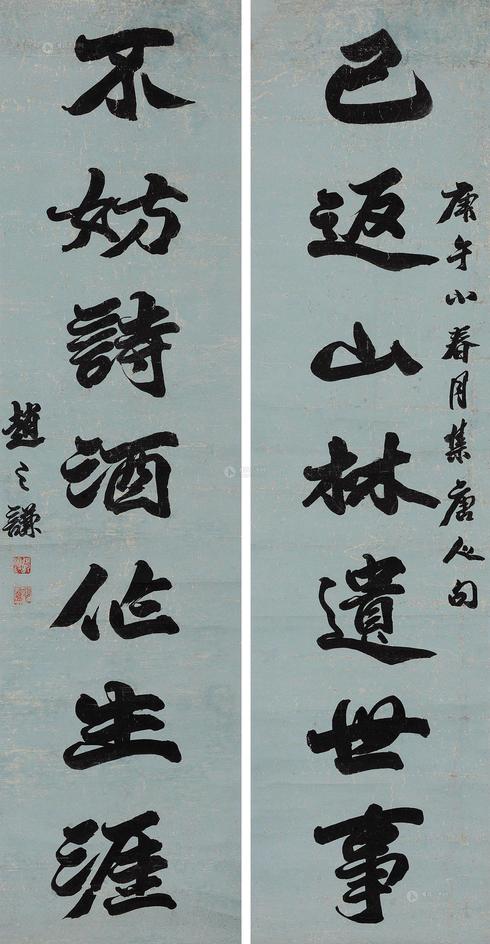 庚午小春月集唐人句
已返山林遺世事
不妨詩酒作生涯
趙之謙